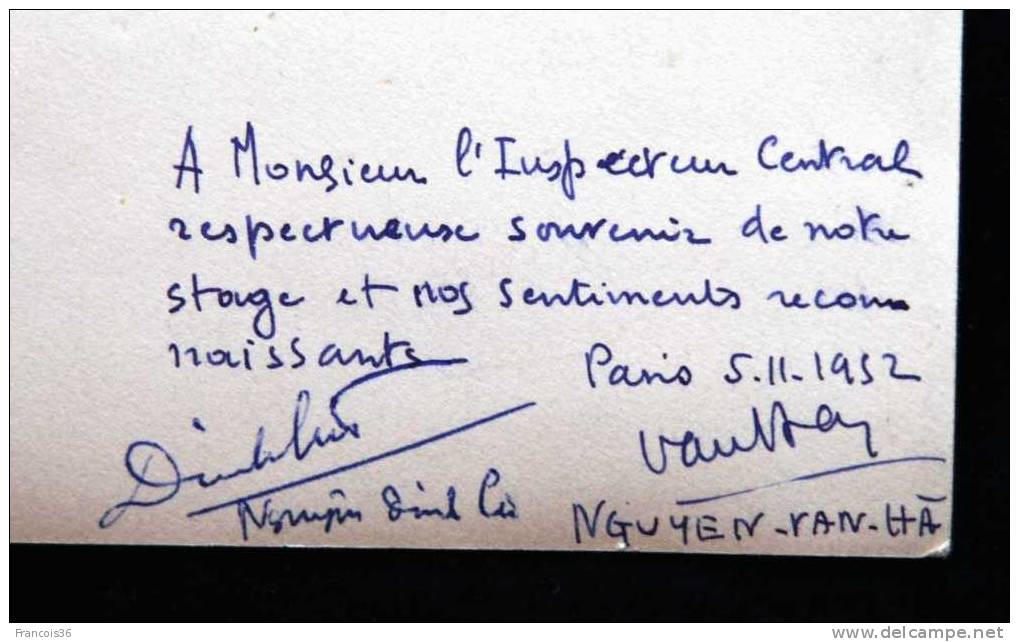 A Monsieur l'Inspecteur Central
respectueuse souvenir de notre
stage et nos sentiments recon
naissants
Paris 5.11.1952
Nguyễn Đình
NGUYEN-VAN-HÀ
Francois36
www.delcampe.net